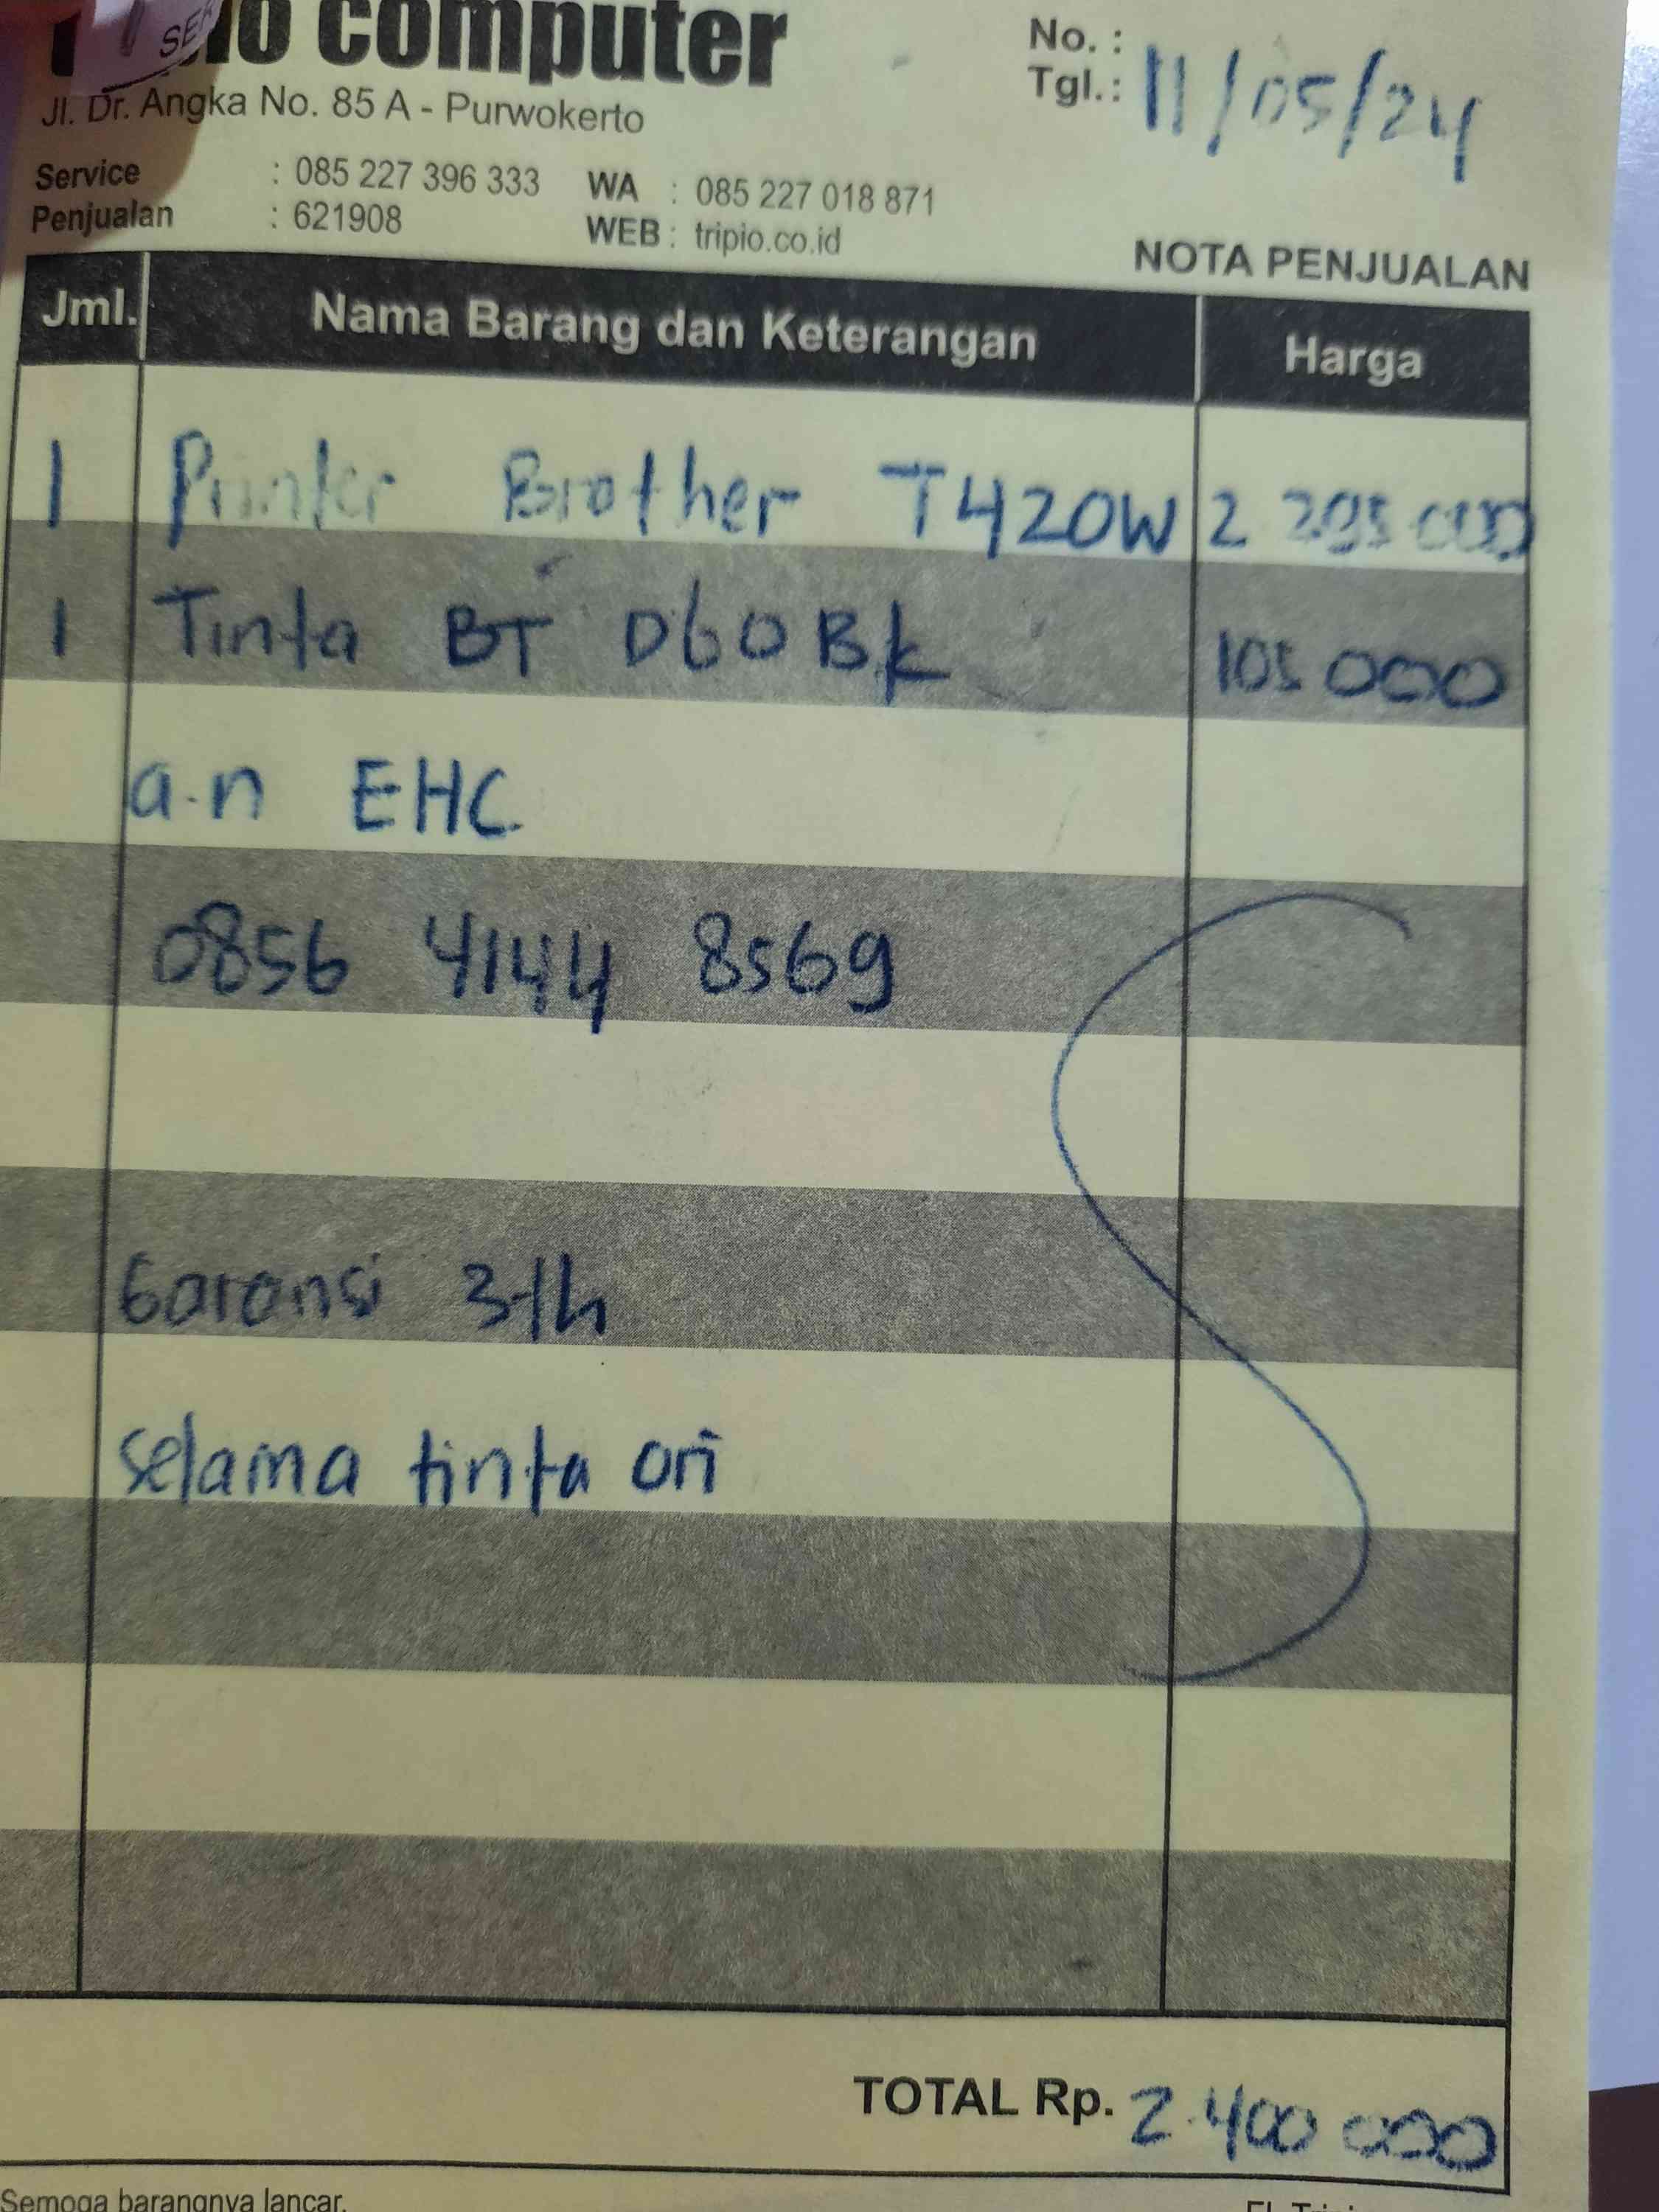 computer
Jl. Dr. Angka No. 85 A - Purwokerto
No. :
Tgl. : 11/05/24
Service : 085 227 396 333 WA : 085 227 018 871
Penjualan : 621908 WEB : tripio.co.id
NOTA PENJUALAN
Jml. Nama Barang dan Keterangan Harga
1 Printer Brother T420W 2 295 000
1 Tinta BT D60 Bk 105 000
a.n EHC
0856 4144 8569
Garansi 3 th
selama tinta ori
TOTAL Rp. 2.400 000
Semoga barangnya lancar.